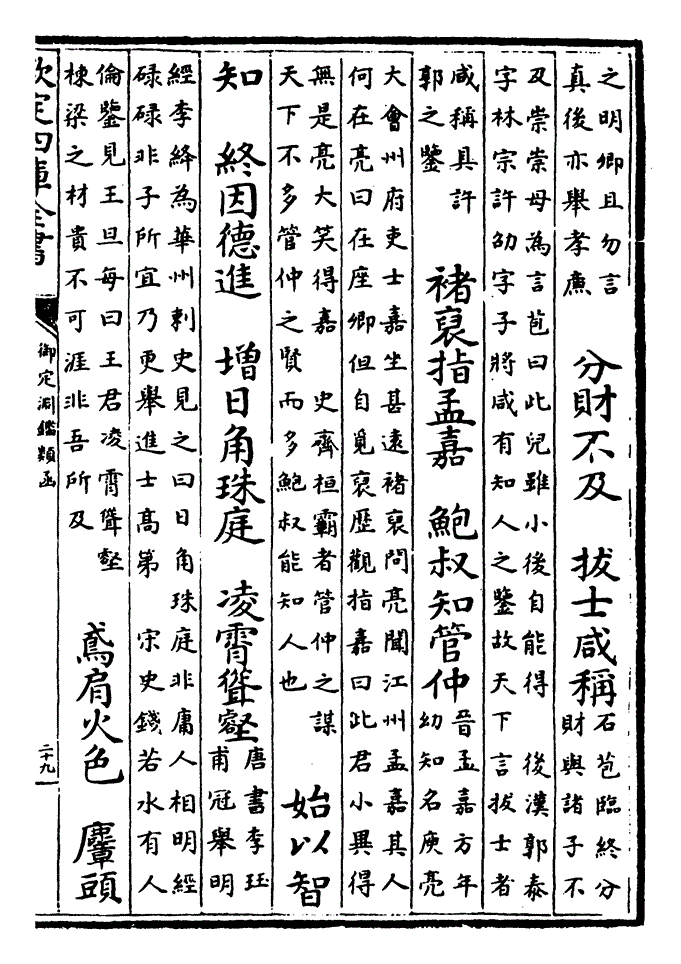 之明卿且勿言
真後亦舉孝廉
分財不及　拔士咸稱
石苞臨終分
財與諸子不
及崇崇母為言苞曰此兒雖小後自能得　後漢郭泰
字林宗許劭字子將咸有知人之鑒故天下言拔士者
咸稱具許
郭之鑒
褚裒指孟嘉　鮑叔知管仲
晉孟嘉方年
幼知名庾亮
大會州府吏士嘉坐甚遠褚裒問亮聞江州孟嘉其人
何在亮曰在座卿但自覓裒歷觀指嘉曰此君小異得
無是亮大笑得嘉　史齊桓霸者管仲之謀
天下不多管仲之賢而多鮑叔能知人也
始以智
知　終因德進　增日角珠庭　凌霄聳壑
唐書李珏
甫冠舉明
經李絳為華州刺史見之曰日角珠庭非庸人相明經
碌碌非子所宜乃更舉進士高第　宋史錢若水有人
倫鑒見王旦每曰王君凌霄聳壑
棟梁之材貴不可涯非吾所及
鳶肩火色　麞頭
欽定四庫全書
御定淵鑑類函
二十九